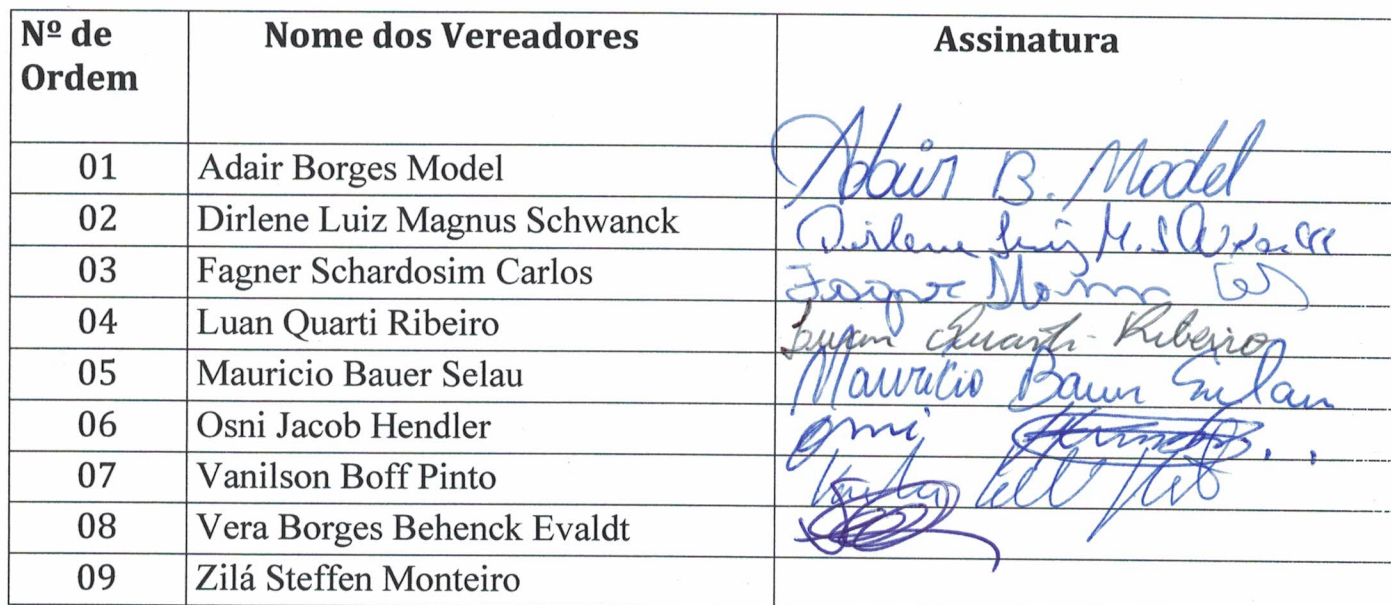 Nº de Ordem Nome dos Vereadores Assinatura
01 Adair Borges Model Adair B. Model
02 Dirlene Luiz Magnus Schwanck Dirlene Luiz M.
03 Fagner Schardosim Carlos
04 Luan Quarti Ribeiro Luan Quarti Ribeiro
05 Mauricio Bauer Selau Mauricio Bauer Selau
06 Osni Jacob Hendler Osni
07 Vanilson Boff Pinto
08 Vera Borges Behenck Evaldt
09 Zilá Steffen Monteiro